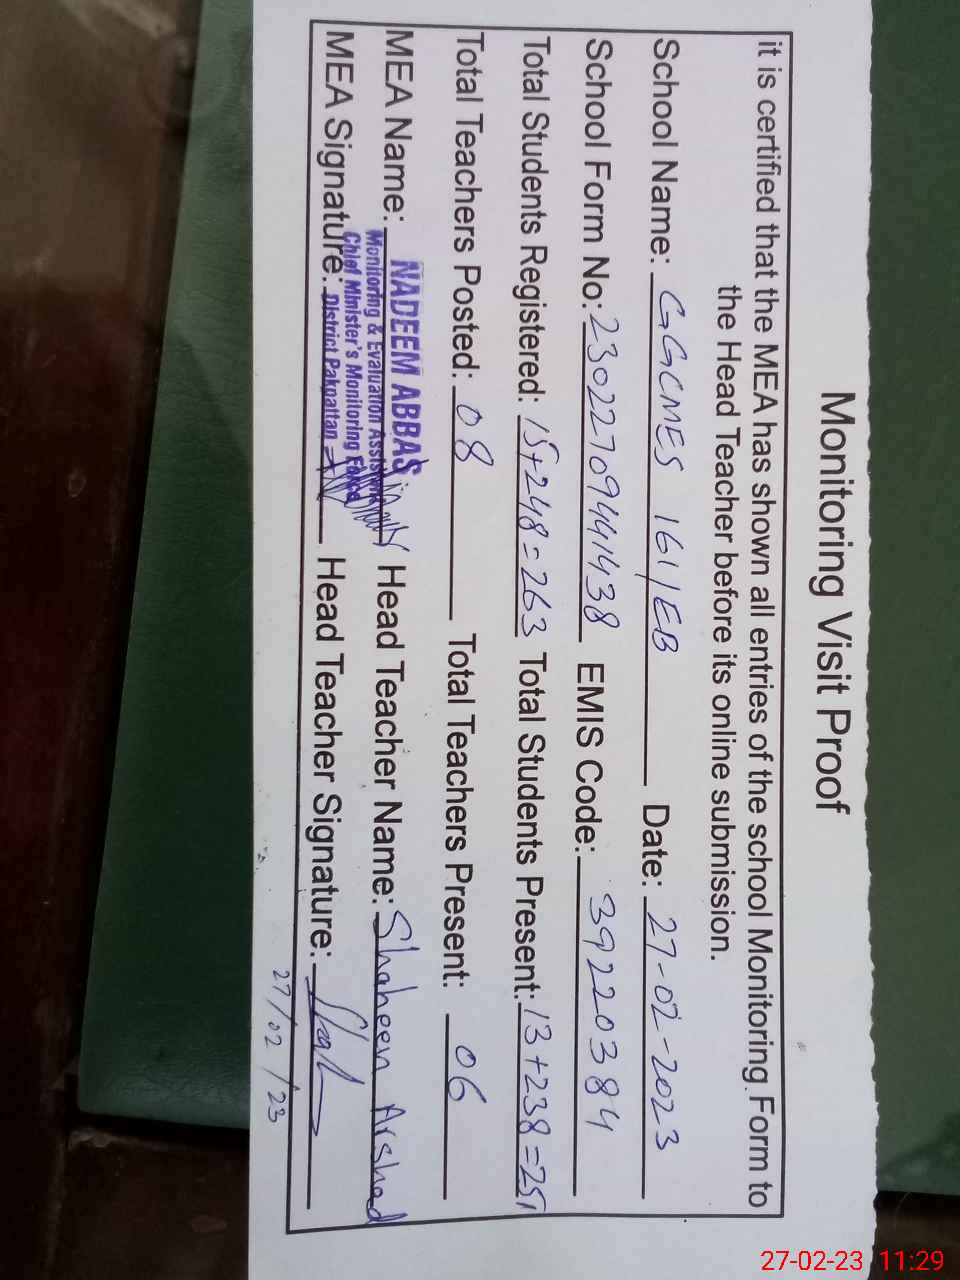 Monitoring Visit Proof
it is certified that the MEA has shown all entries of the school Monitoring Form to
the Head Teacher before its online submission.
School Name: GGCMES 161/EB Date: 27-02-2023
School Form No: 23022709441438 EMIS Code: 39220384
Total Students Registered: 15+248=263 Total Students Present: 13+238=251
Total Teachers Posted: 08 Total Teachers Present: 06
MEA Name: NADEEM ABBAS Head Teacher Name: Shaheen Arshad
Monitoring & Evaluation Assistant
Chief Minister's Monitoring Force
MEA Signature: District Pakpattan Head Teacher Signature:
27/02/23
27-02-23 11:29